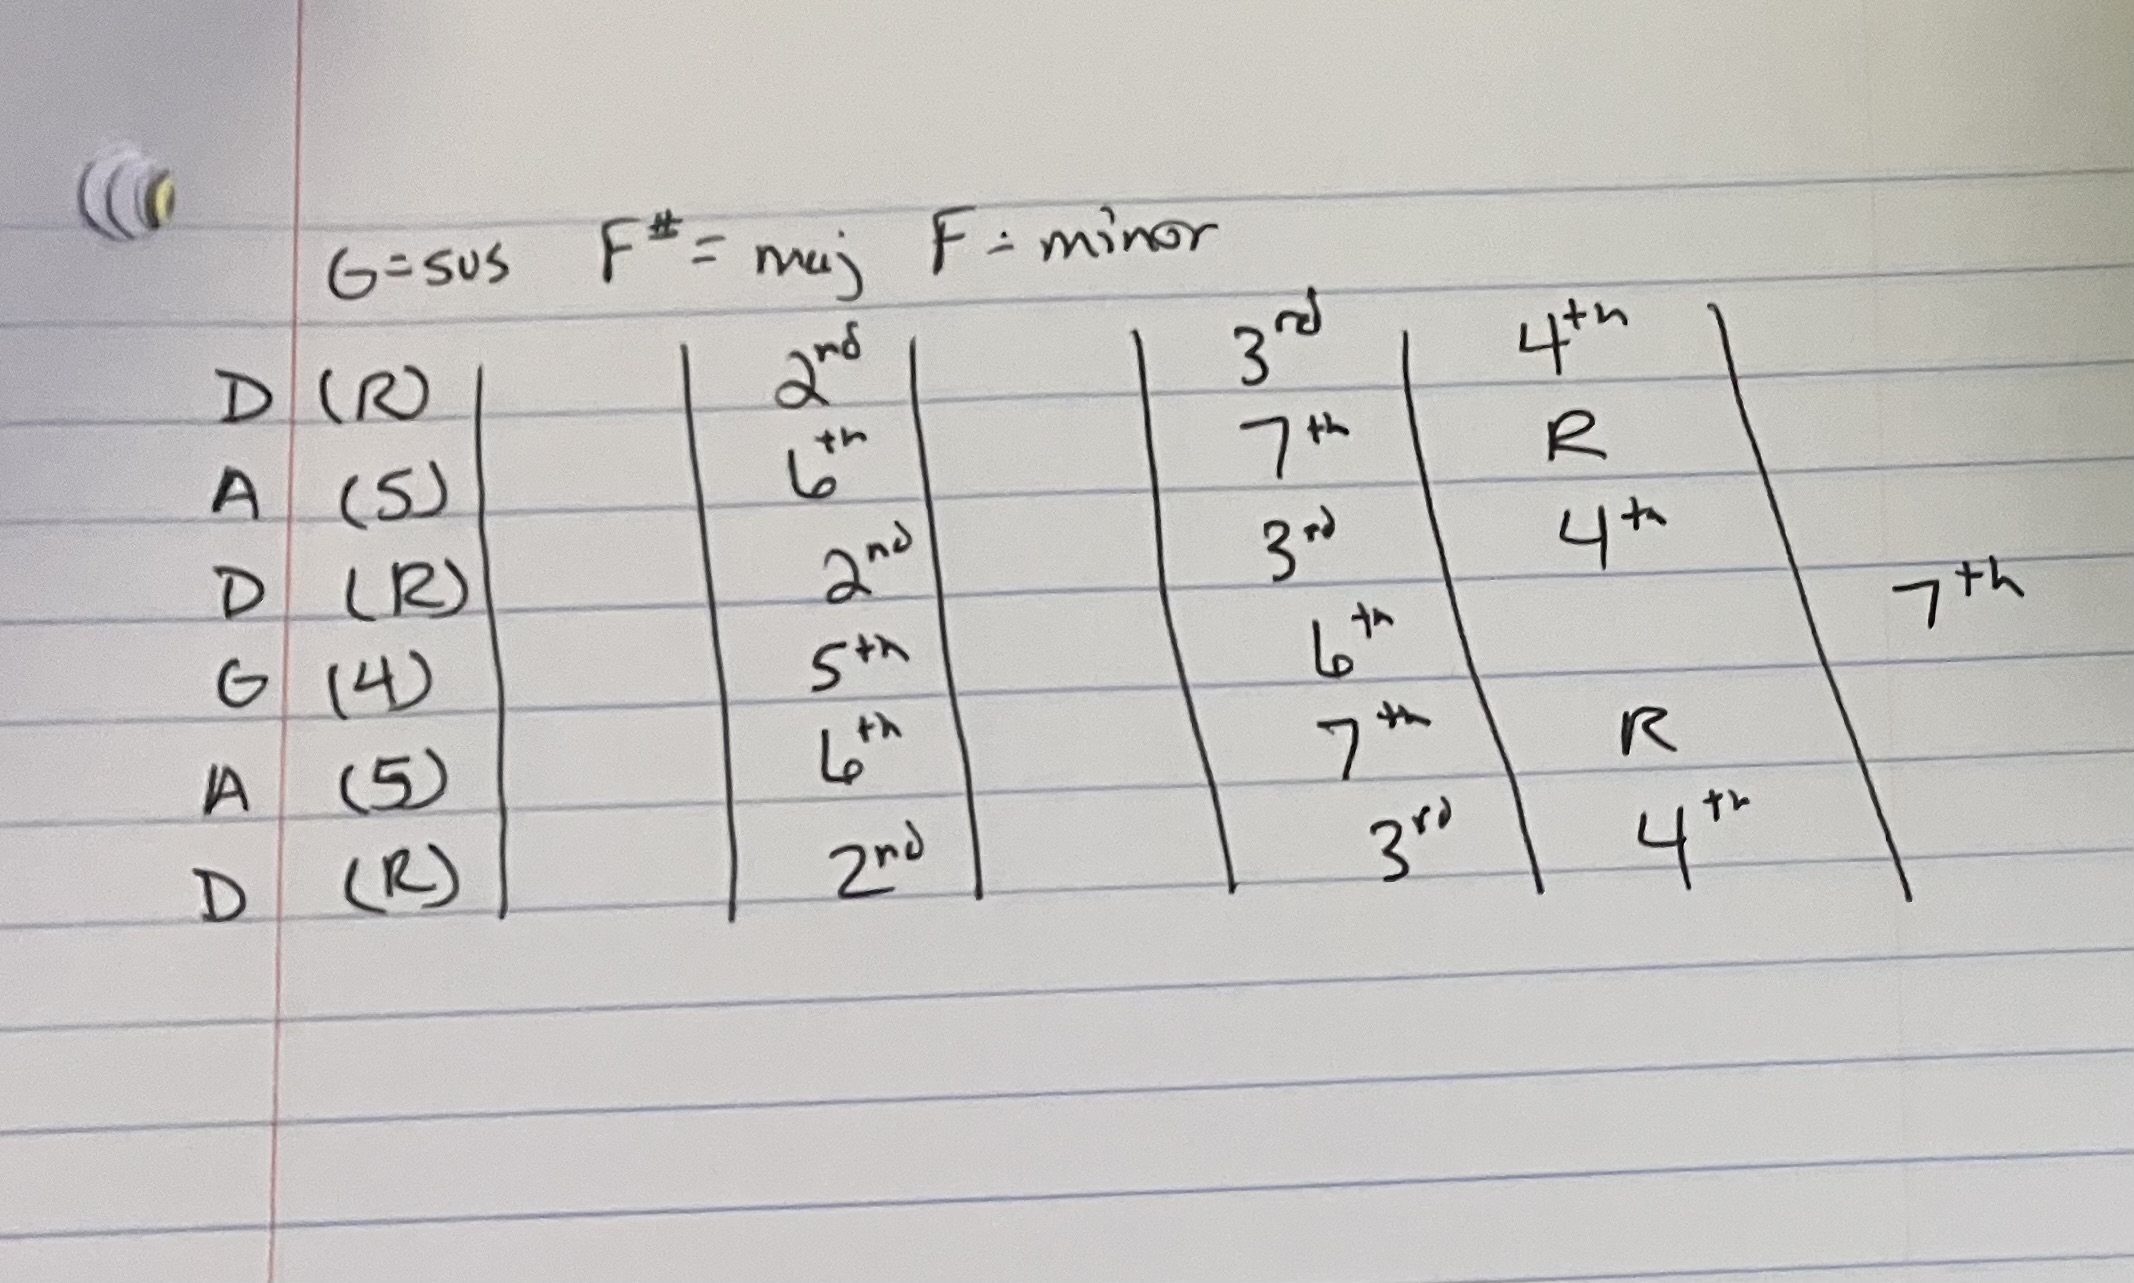 G=sus F#=maj F=minor
D (R) | | 2nd | | 3rd | 4th |
A (5) | | 6th | | 7th | R |
D (R) | | 2nd | | 3rd | 4th |
G (4) | | 5th | | 6th | | 7th
A (5) | | 6th | | 7th | R |
D (R) | | 2nd | | 3rd | 4th |